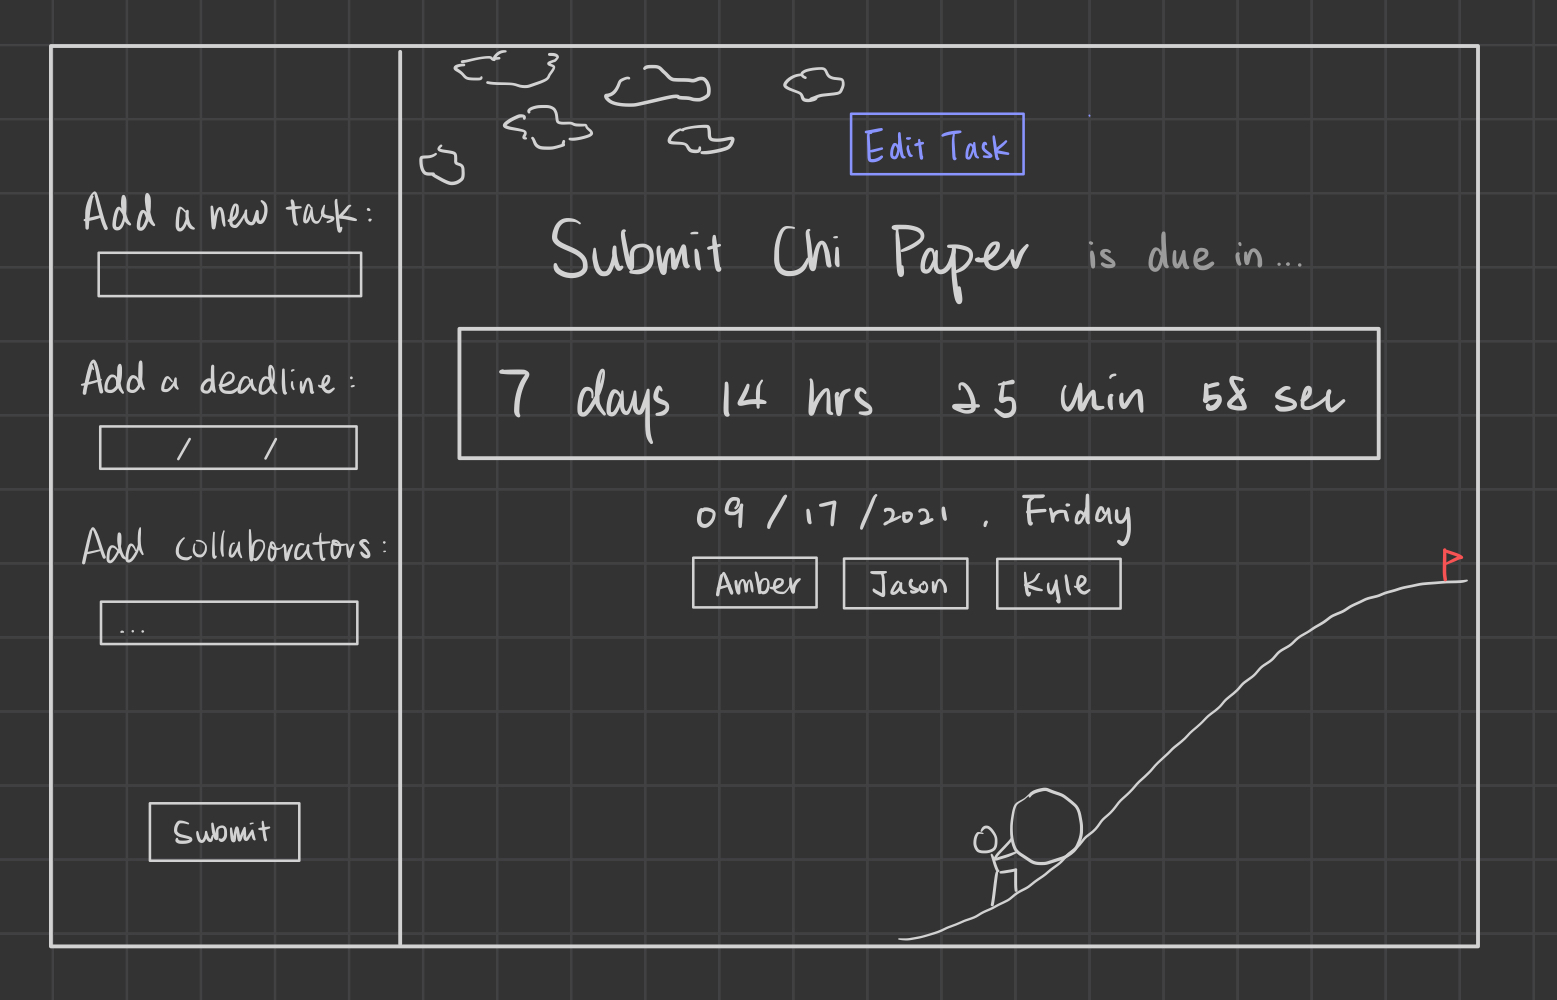 Add a new task:
Add a deadline:
/ /
Add collaborators:
...
Submit
Edit Task
Submit Chi Paper is due in...
7 days 14 hrs 25 min 58 sec
09/17/2021. Friday
Amber Jason Kyle